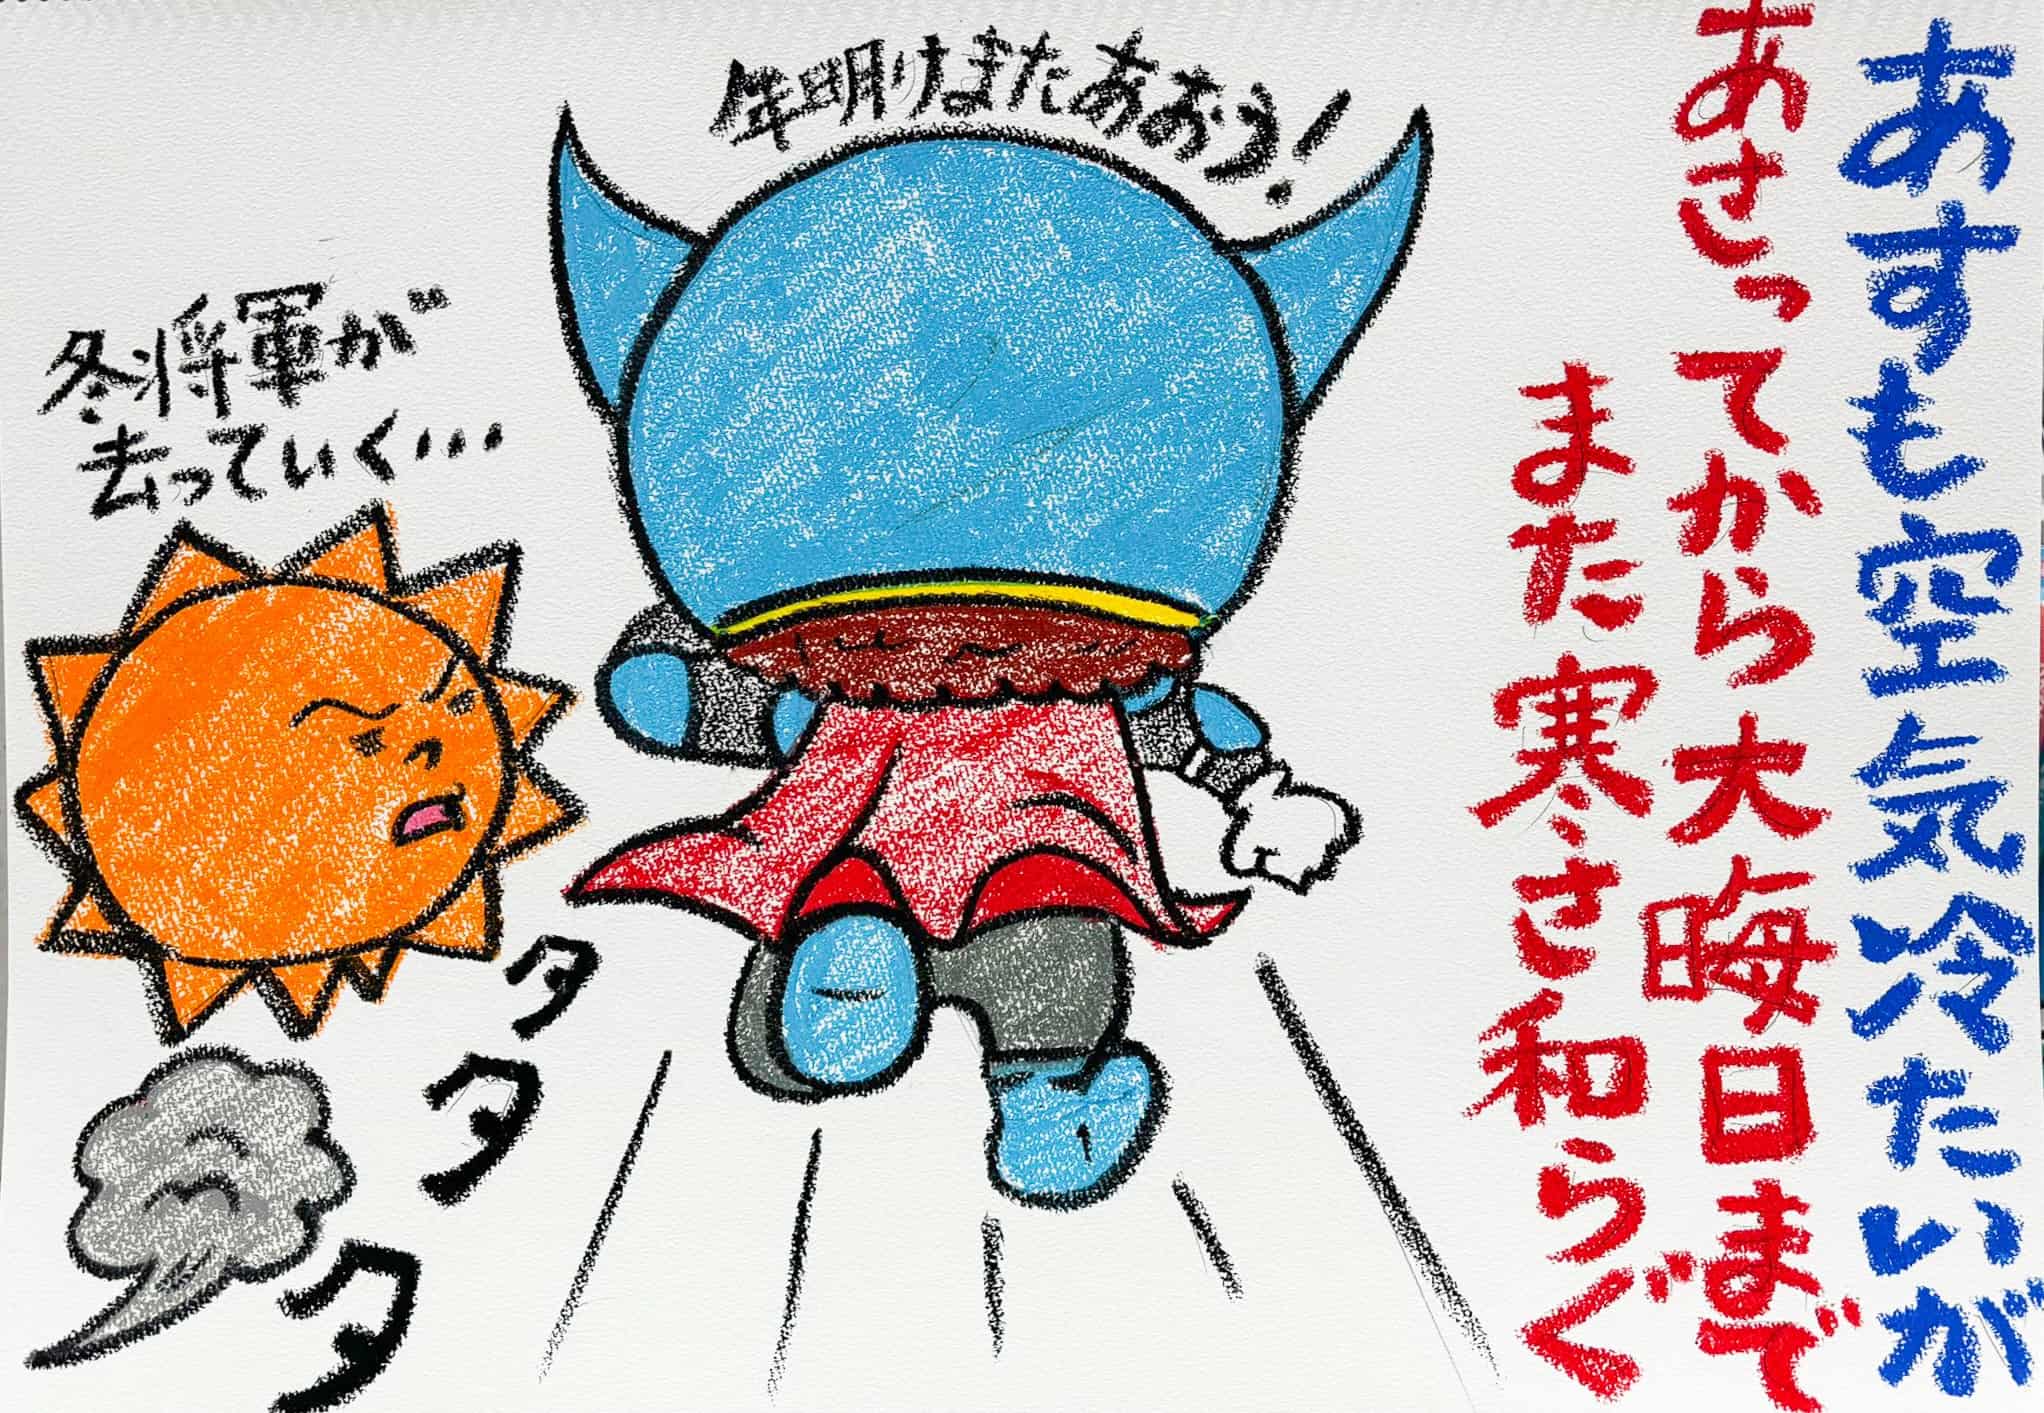 あすも空気冷たいが
あさってから大晦日まで
また寒さ和らぐ
年明けまたあおう!
冬将軍が
去っていく…
タタタ